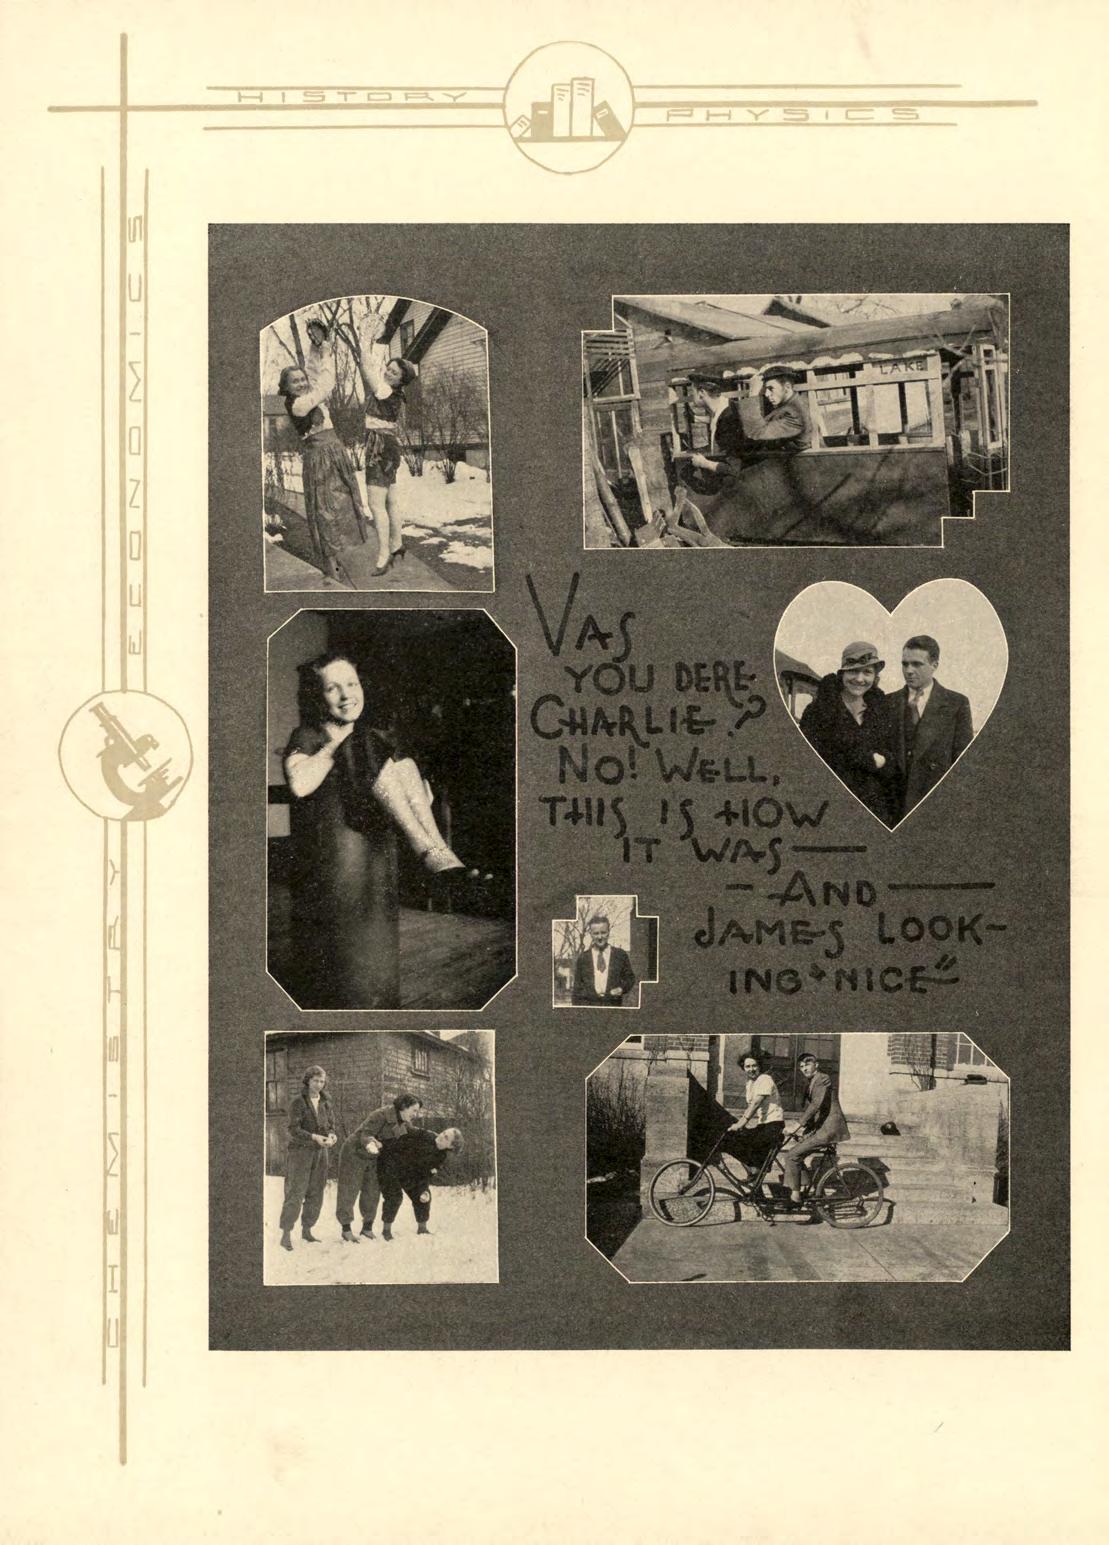 HISTORY
PHYSICS
ECONOMICS
CHEMISTRY
LAKE
VAS
YOU DERE
CHARLIE?
NO! WELL,
THIS IS HOW
IT WAS—
- AND —
JAMES LOOK-
ING "NICE"